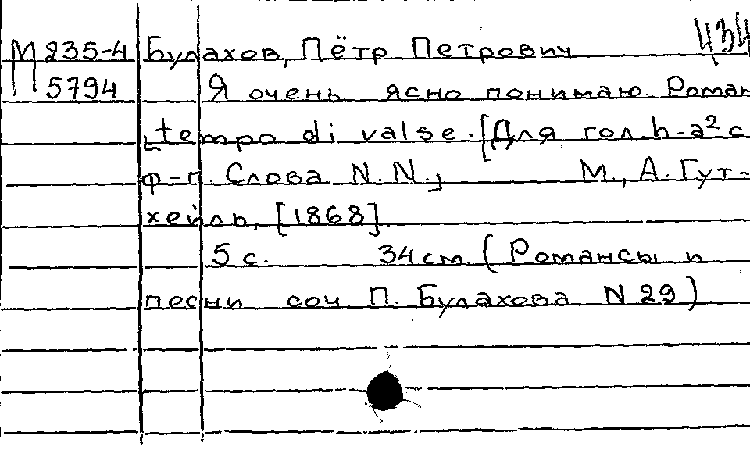 М 235-4 Булахов, Пётр Петрович 434
5794 Я очень ясно понимаю. Роман
tempo di valse. [Для гол. h-a² с
ф-п. Слова N.N., М., А. Гут-
хейль, [1868].
5 с. 34 см. (Романсы и
песни соч П. Булахова N 29)